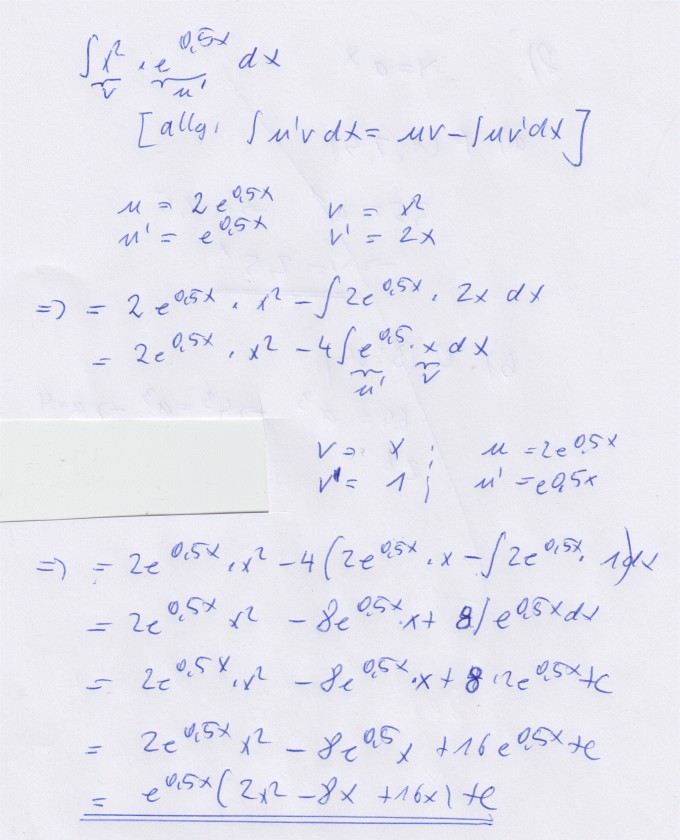 ∫ x² · e^0,5x dx
v u'
[allg. ∫ u'v dx = uv - ∫ uv' dx]
u = 2e^0,5x v = x²
u' = e^0,5x v' = 2x
=> = 2e^0,5x · x² - ∫ 2e^0,5x · 2x dx
= 2e^0,5x · x² - 4 ∫ e^0,5 · x dx
u' v
v = x ; u = 2e^0,5x
v' = 1 ; u' = e^0,5x
=> = 2e^0,5x · x² - 4 (2e^0,5x · x - ∫ 2e^0,5x · 1) dx
= 2e^0,5x x² - 8e^0,5x · x + 8 ∫ e^0,5x dx
= 2e^0,5x · x² - 8e^0,5x · x + 8 · 2e^0,5x + c
= 2e^0,5x x² - 8e^0,5 x + 16 e^0,5x + c
= e^0,5x (2x² - 8x + 16x) + c